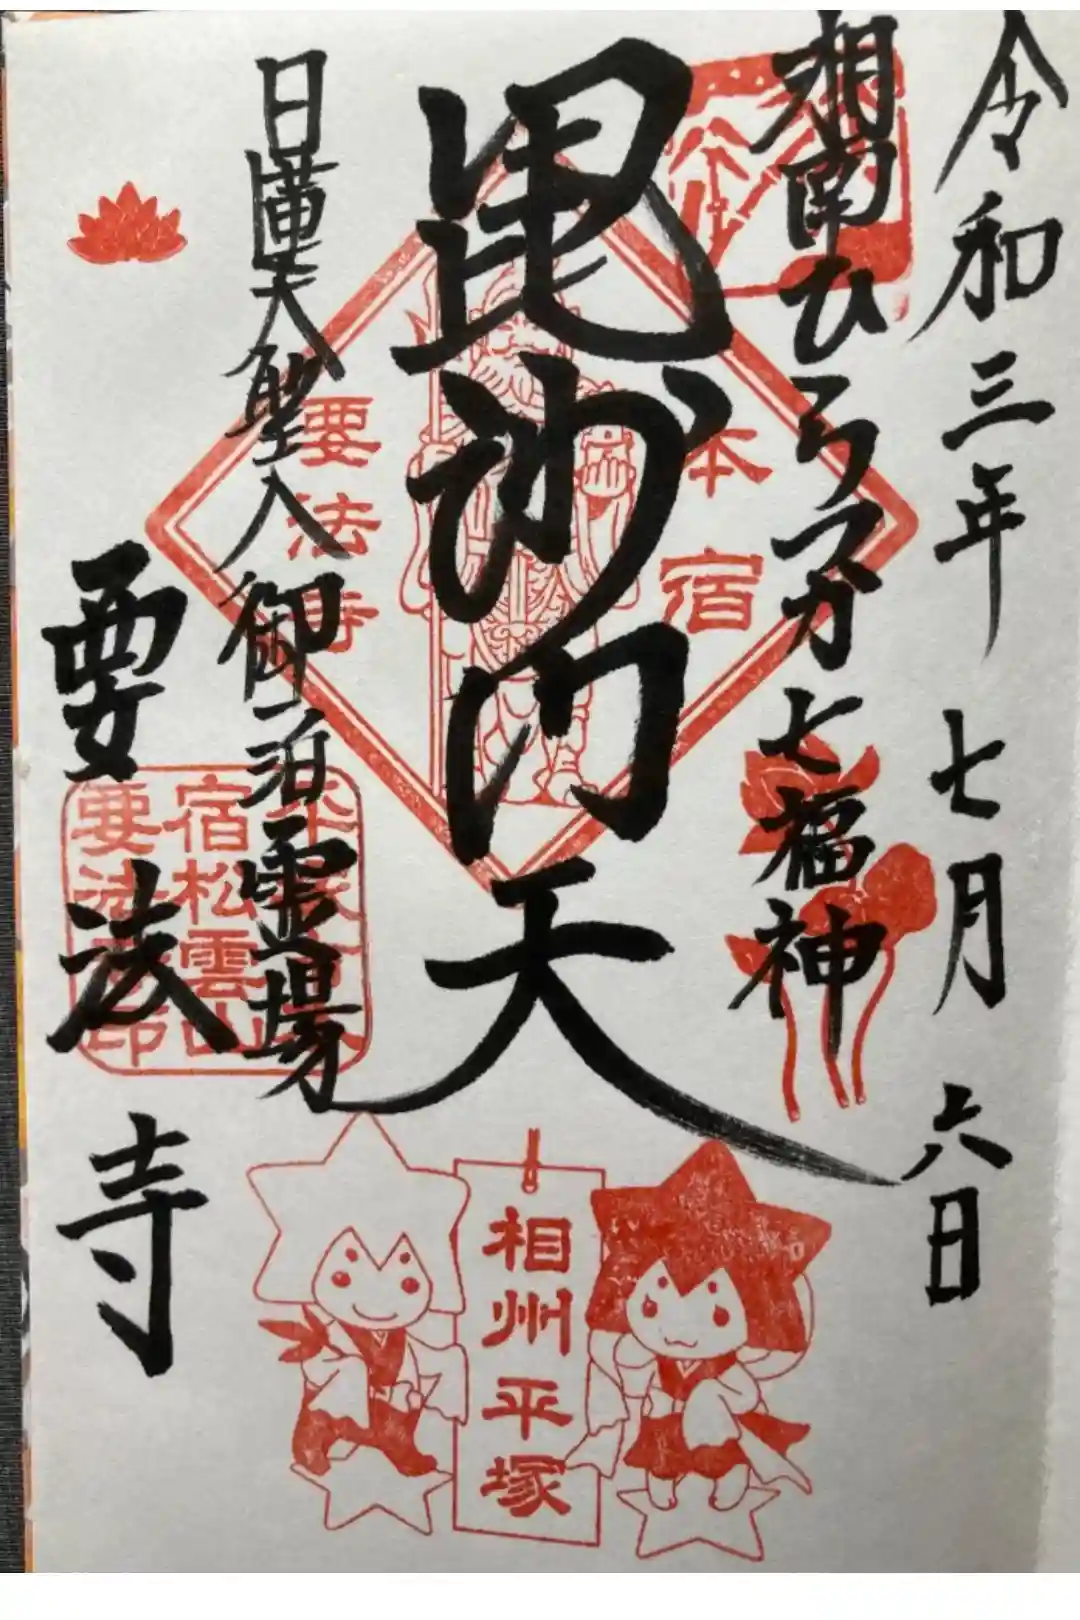 令和三年 七月 六日
湘南ひらつか七福神
毘沙門天
日蓮大聖人御泊霊場
要法寺
本宿
要法寺
宿松雲山
要法寺印
相州平塚